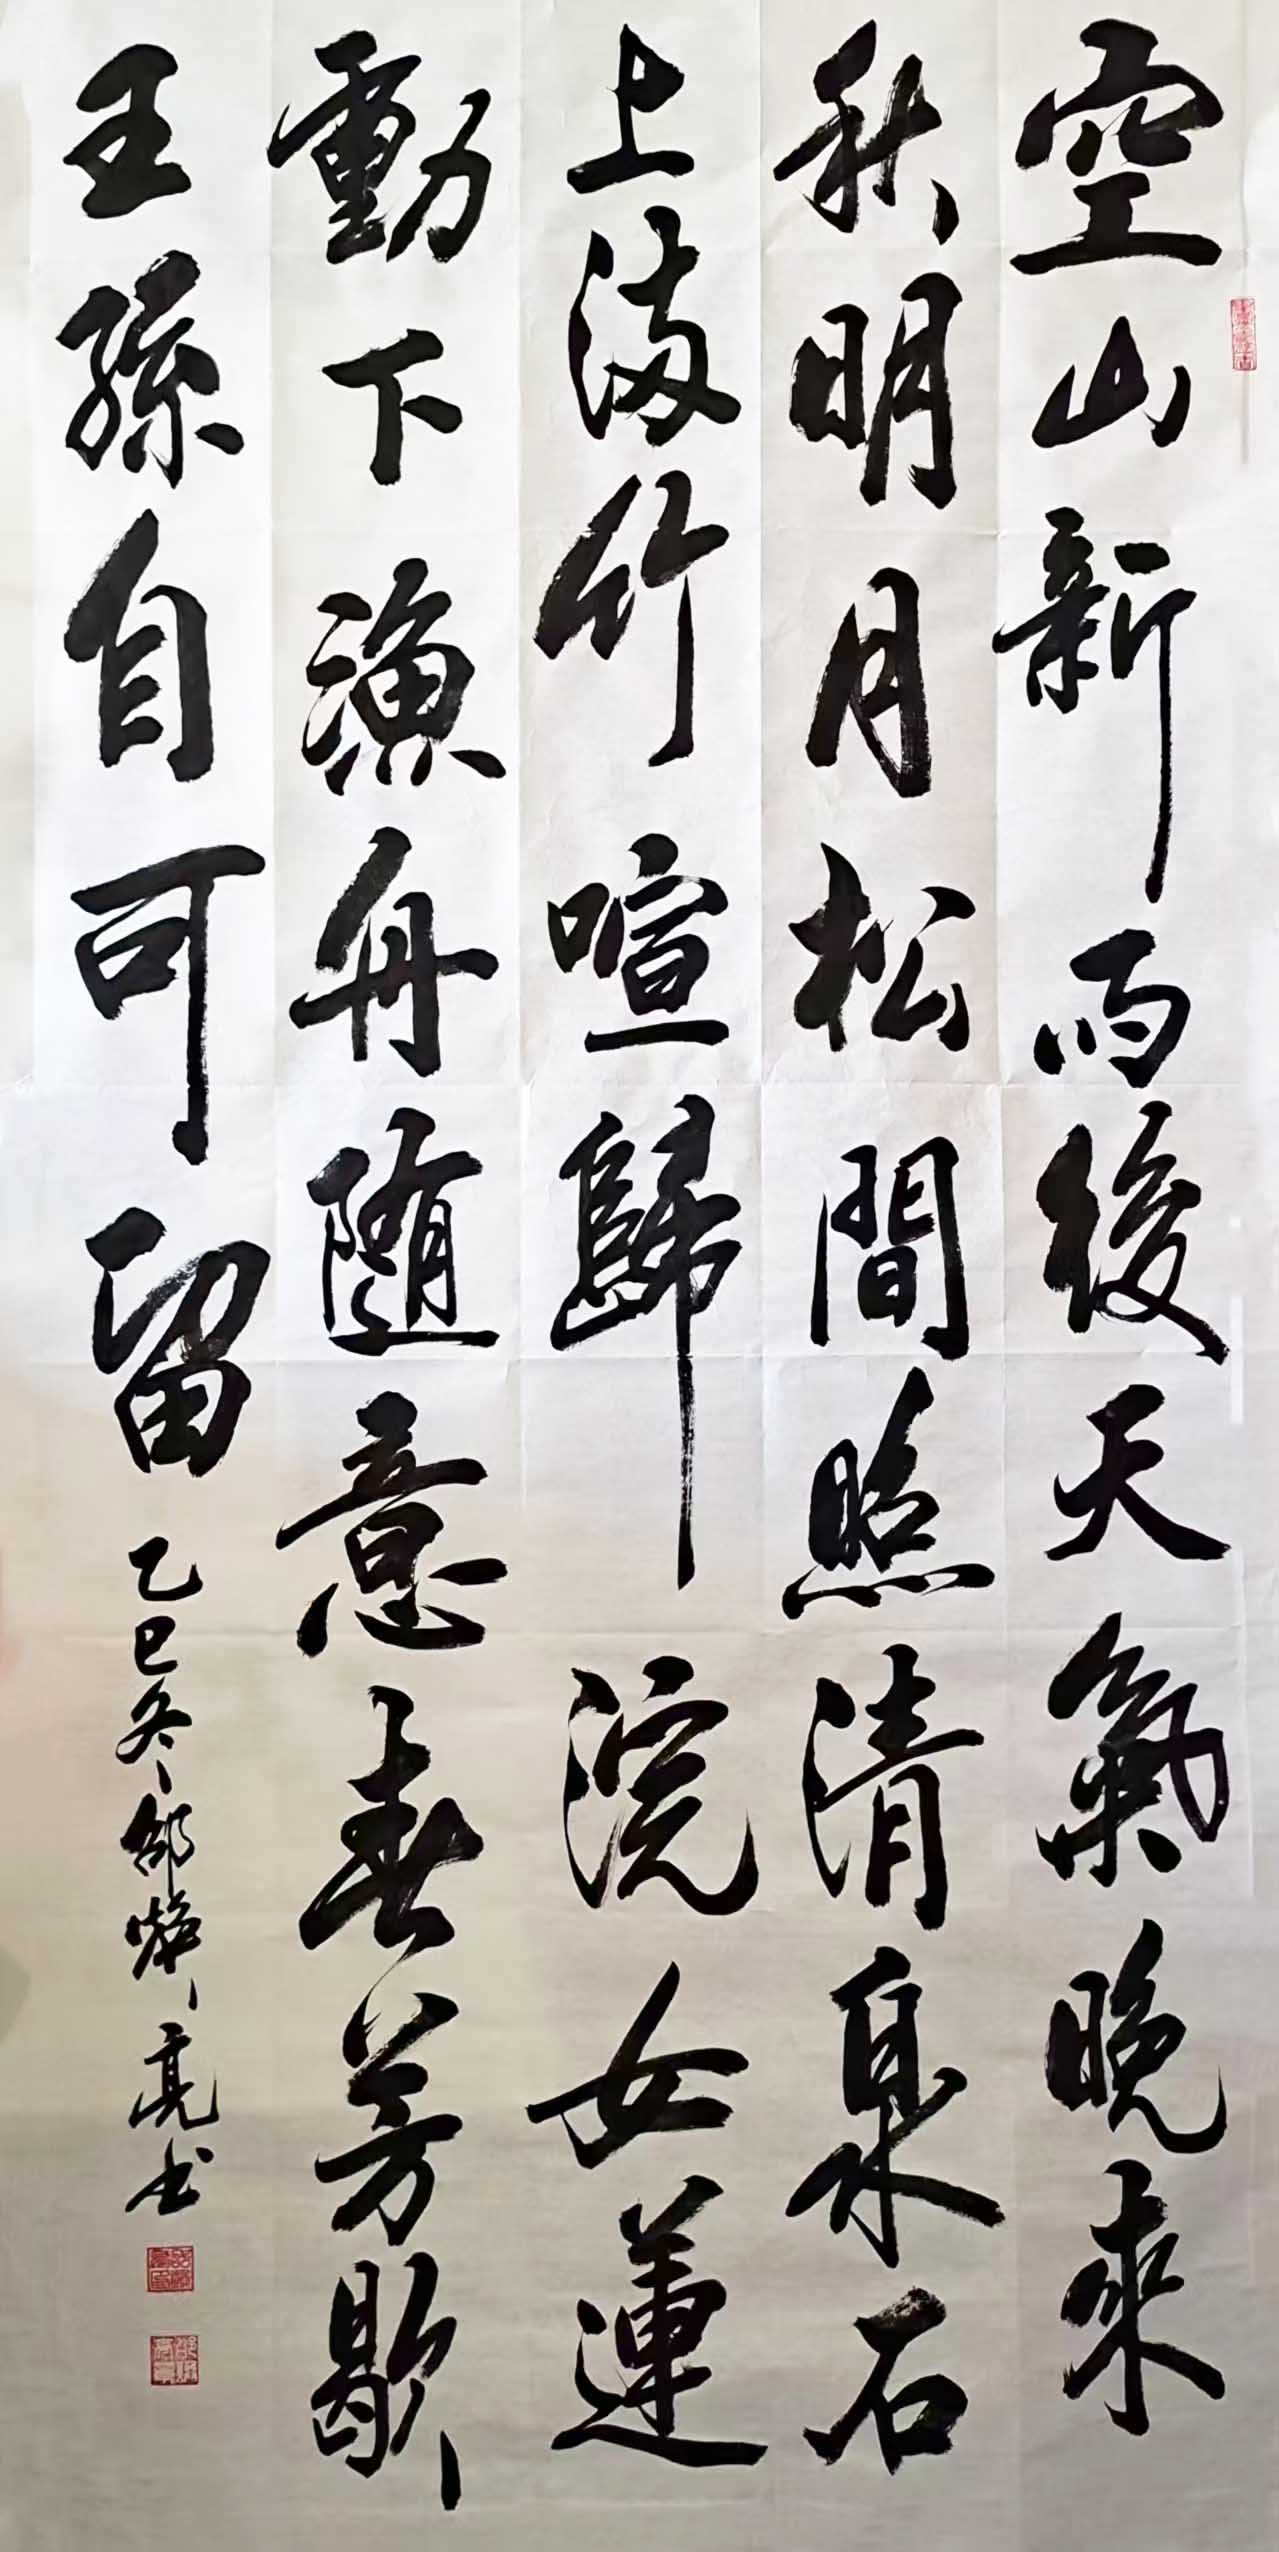 空山新雨後天氣晚來
秋明月松間照清泉石
上流竹喧歸浣女蓮
動下漁舟随意春芳歇
王孫自可留
乙巳冬 亮书